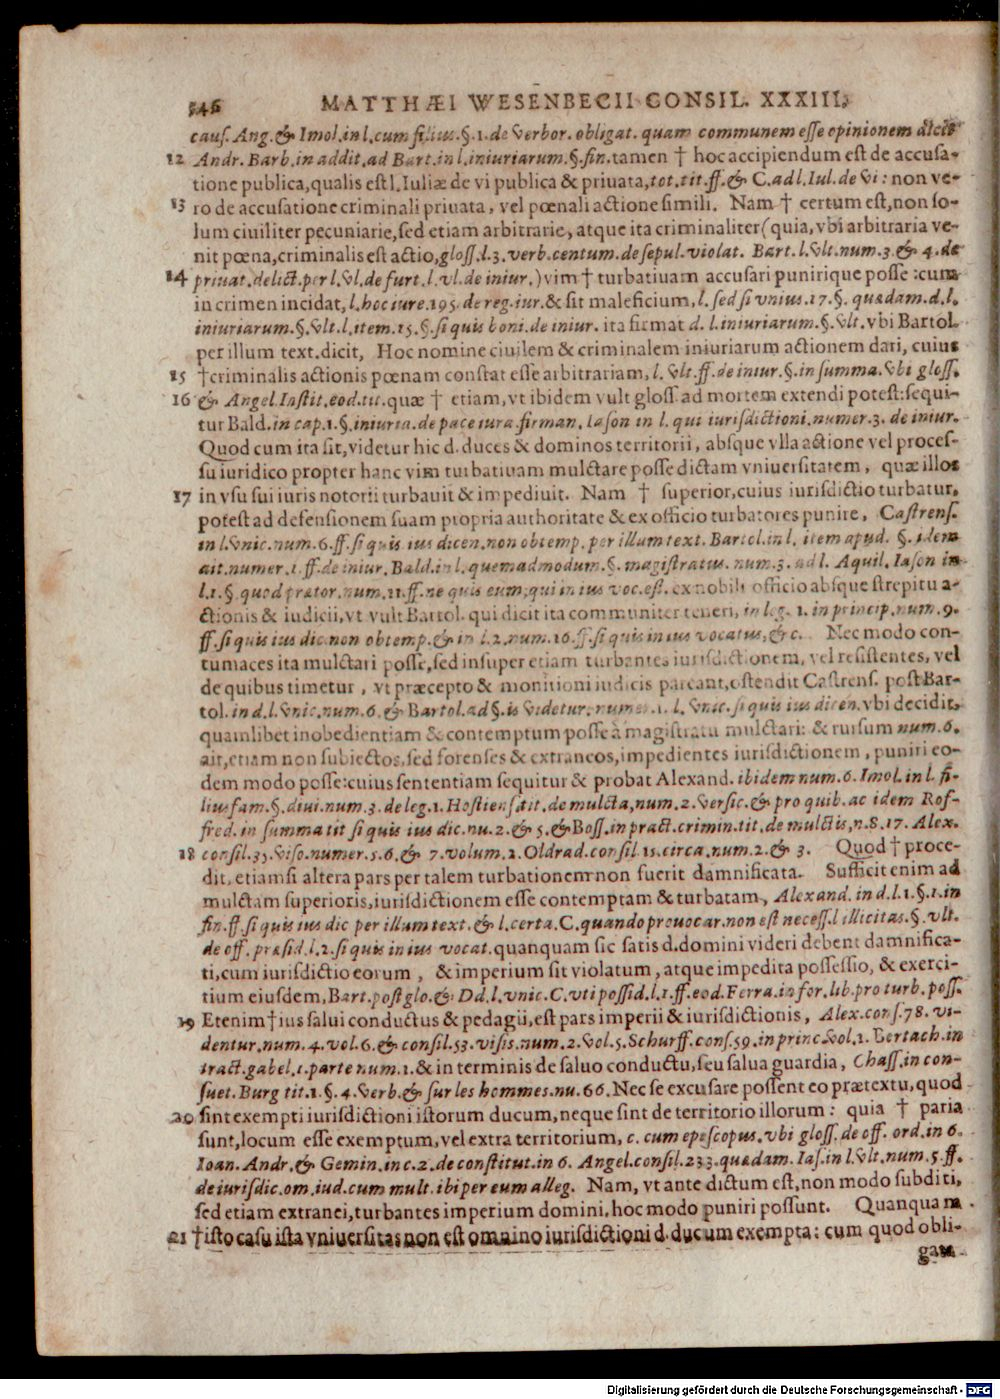 546 MATTHÆI WESENBECII CONSIL. XXXIII.
caus. Ang. & Imol. in l. cum filius. §. 1. de verbor. obligat. quam communem esse opinionem dicit
12 Andr. Barb. in addit. ad Bart. in l. iniuriarum. §. fin. tamen † hoc accipiendum est de accusa-
tione publica, qualis est l. Iuliæ de vi publica & priuata, tot. tit. ff. & C. ad l. Iul. de vi: non ve-
13 ro de accusatione criminali priuata, vel pœnali actione simili. Nam † certum est, non so-
lum ciuiliter pecuniarie, sed etiam arbitrarie, atque ita criminaliter (quia, vbi arbitraria ve-
nit pœna, criminalis est actio, gloss. l. 3. verb. centum. de sepul. violat. Bart. l. vlt. num. 3. & 4. de
14 priuat. delict. per l. vl. de furt. l. vl. de iniur.) vim † turbatiuam accusari punirique posse: cum
in crimen incidat, l. hoc iure. 195. de reg. iur. & sit maleficium, l. sed si vnius. 17. §. quædam. d. l.
iniuriarum. §. vlt. l. item. 15. §. si quis boni. de iniur. ita firmat d. l. iniuriarum. §. vlt. vbi Bartol.
per illum text. dicit, Hoc nomine ciuilem & criminalem iniuriarum actionem dari, cuius
15 † criminalis actionis pœnam constat esse arbitrariam, l. vlt. ff. de iniur. §. in summa. vbi gloss.
16 & Angel. Instit. eod. tit. quæ † etiam, vt ibidem vult gloss. ad mortem extendi potest: sequi-
tur Bald. in cap. 1. §. iniuria. de pace iura. firman. Iason in l. qui iurisdictioni. numer. 3. de iniur.
Quod cum ita sit, videtur hic d. duces & dominos territorii, absque vlla actione vel proces-
su iuridico propter hanc vim turbatiuam mulctare posse dictam vniuersitatem, quæ illos
17 in vsu sui iuris notorii turbauit & impediuit. Nam † superior, cuius iurisdictio turbatur,
potest ad defensionem suam propria authoritate & ex officio turbatores punire, Castrens.
in l. vnic. num. 6. ff. si quis ius dicen. non obtemp. per illum text. Bartol. in l. item apud. §. idem
ait. numer. 1. ff. de iniur. Bald. in l. quemadmodum. §. magistratus. num. 3. ad l. Aquil. Iason in
l. 1. §. quod prætor. num. 11. ff. ne quis eum, qui in ius voc. est. ex nobili officio absque strepitu a-
ctionis & iudicii, vt vult Bartol. qui dicit ita communiter teneri, in leg. 1. in princip. num. 9.
ff. si quis ius dic. non obtemp. & in l. 2. num. 16. ff. si quis in ius vocatus, &c. Nec modo con-
tumaces ita mulctari posse, sed insuper etiam turbantes iurisdictionem, vel resistentes, vel
de quibus timetur, vt præcepto & monitioni iudicis pareant, ostendit Castrens. post Bar-
tol. in d. l. vnic. num. 6. & Bartol. ad §. is videtur. numer. 1. l. vnic. si quis ius dicen. vbi decidit,
quamlibet inobedientiam & contemptum posse à magistratu mulctari: & rursum num. 6.
ait, etiam non subiectos, sed forenses & extraneos, impedientes iurisdictionem, puniri eo-
dem modo posse: cuius sententiam sequitur & probat Alexand. ibidem num. 6. Imol. in l. fi-
lius fam. §. diui. num. 3. de leg. 1. Hostiens. tit. de mulcta, num. 2. versic. & pro quib. ac idem Rof-
fred. in summa tit. si quis ius dic. nu. 2. & 5. & Boss. in pract. crimin. tit. de mulctis, n. 8. 17. Alex.
18 consil. 33. viso. numer. 5. 6. & 7. volum. 2. Oldrad. consil. 15. circa. num. 2. & 3. Quod † proce-
dit, etiamsi altera pars per talem turbationem non fuerit damnificata. Sufficit enim ad
mulctam superioris, iurisdictionem esse contemptam & turbatam, Alexand. in d. l. 1. §. 1. in
fin. ff. si quis ius dic per illum text. & l. certa. C. quando prouocar. non est necess. l. illicitas. §. vlt.
de off. præsid. l. 2. si quis in ius vocat. quanquam sic satis d. domini videri debent damnifica-
ti, cum iurisdictio eorum, & imperium sit violatum, atque impedita possessio, & exerci-
tium eiusdem, Bart. post glo. & Dd. l. vnic. C. vti possid. l. 1. ff. eod. Ferra. in for. lib. pro turb. poss.
19 Etenim † ius salui conductus & pedagii, est pars imperii & iurisdictionis, Alex. cons. 78. vi-
dentur. num. 4. vol. 6. & consil. 53. visis. num. 2. vol. 5. Schurff. cons. 59. in princ. vol. 1. Bertach. in
tract. gabel. 1. parte num. 1. & in terminis de saluo conductu, seu salua guardia, Chass. in con-
suet. Burg tit. 1. §. 4. verb. & sur les hommes. nu. 66. Nec se excusare possent eo prætextu, quod
20 sint exempti iurisdictioni istorum ducum, neque sint de territorio illorum: quia † paria
sunt, locum esse exemptum, vel extra territorium, c. cum episcopus. vbi gloss. de off. ord. in 6.
Ioan. Andr. & Gemin. in c. 2. de constitut. in 6. Angel. consil. 233. quædam. Ias. in l. vlt. num. 5. ff.
de iurisdic. om. iud. cum mult. ibi per eum alleg. Nam, vt ante dictum est, non modo subditi,
sed etiam extranei, turbantes imperium domini, hoc modo puniri possunt. Quanquam
21 † isto casu ista vniuersitas non est omnino iurisdictioni d. ducum exempta: cum quod obli-
gam
Digitalisierung gefördert durch die Deutsche Forschungsgemeinschaft - DFG